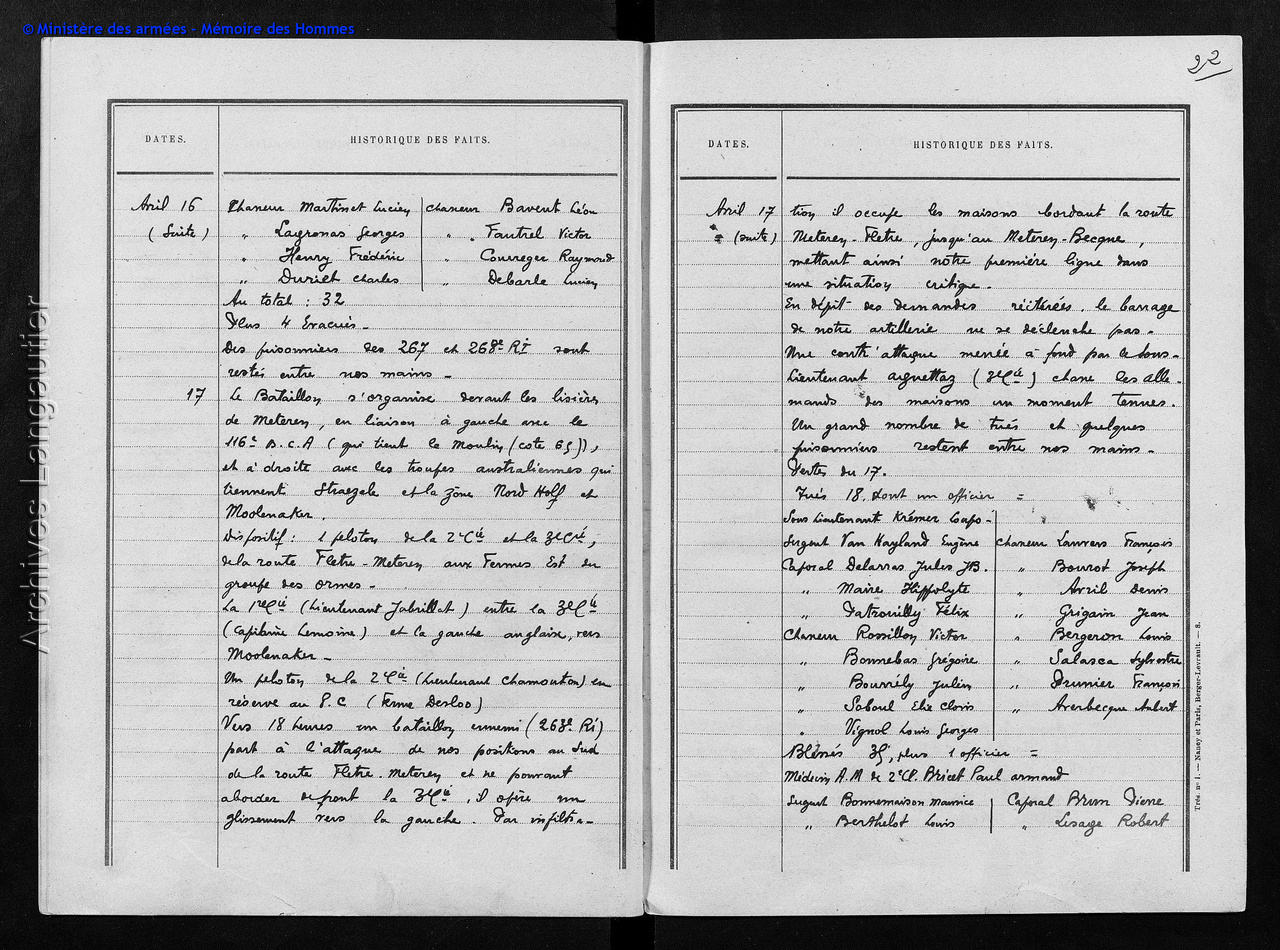 © Ministère des armées - Mémoire des Hommes
Archives Langautier
DATES.
HISTORIQUE DES FAITS.
Avril 16
(Suite)
Chasseur Martinet Lucien
" Lagronas Georges
" Henry Frédéric
" Duriet Charles
Chasseur Bavent Léon
" Fautrel Victor
" Courreger Raymond
" Debarle Lucien
Au total : 32
Plus 4 Evacués -
Des prisonniers des 267 et 268e RI sont
restés entre nos mains -
17
Le Bataillon s'organise devant les lisières
de Meteren, en liaison à gauche avec le
116e B.C.A (qui tient le Moulin (cote 65)),
et à droite avec les troupes australiennes qui
tiennent Strazeele et la zône Nord Holf et
Moolenaker.
Dispositif : 1 peloton de la 2e Cie et la 3e Cie,
de la route Fletre-Meteren aux Fermes Est du
groupe des Ormes -
La 1re Cie (Lieutenant Jabrillat) entre la 3e Cie
(Capitaine Lemoine) et la gauche anglaise, vers
Moolenaker -
Un peloton de la 2e Cie (Lieutenant Chamouton) en
réserve au P.C (Ferme Desloo)
Vers 18 heures un bataillon ennemi (263e RI)
part à l'attaque de nos positions au Sud
de la route Fletre-Meteren et ne pouvant
aborder de front la 3e Cie, il opère un
glissement vers la gauche. Par infiltra-
22
DATES.
HISTORIQUE DES FAITS.
Avril 17
(suite)
tion il occupe les maisons bordant la route
Meteren-Fletre, jusqu'au Meteren-Becque,
mettant ainsi notre première ligne dans
une situation critique.
En dépit des demandes réitérées, le barrage
de notre artillerie ne se déclenche pas -
Une contr'attaque menée à fond par le Sous-
Lieutenant Aignettaz (3e Cie) chasse les Alle-
mands des maisons un moment tenues.
Un grand nombre de tués et quelques
prisonniers restent entre nos mains -
Pertes du 17.
Tués 18, dont un officier =
Sous Lieutenant Krémer Capo -
Sergent Van Hayland Eugène
Caporal Delarras Jules JB.
" Maire Hippolyte
" Patrouilly Félix
Chasseur Rossillon Victor
" Bonnebas Grégoire
" Bourrély Julien
" Saboul Elie Clovis
" Vignol Louis Georges
Chasseur Lauvers François
" Bourot Joseph
" Avril Denis
" Grigain Jean
" Bergeron Louis
" Salasca Sylvestre
" Prunier François
" Averbecque Aubert
Bléssés 35, plus 1 officier =
Médecin A.M de 2e Cl. Bricet Paul Armand
Sergent Bonnemaison Maurice
" Berthelot Louis
Caporal Brun Pierre
" Lesage Robert
Trés. n° 1. — Nancy et Paris, Berger-Levrault. — 8.